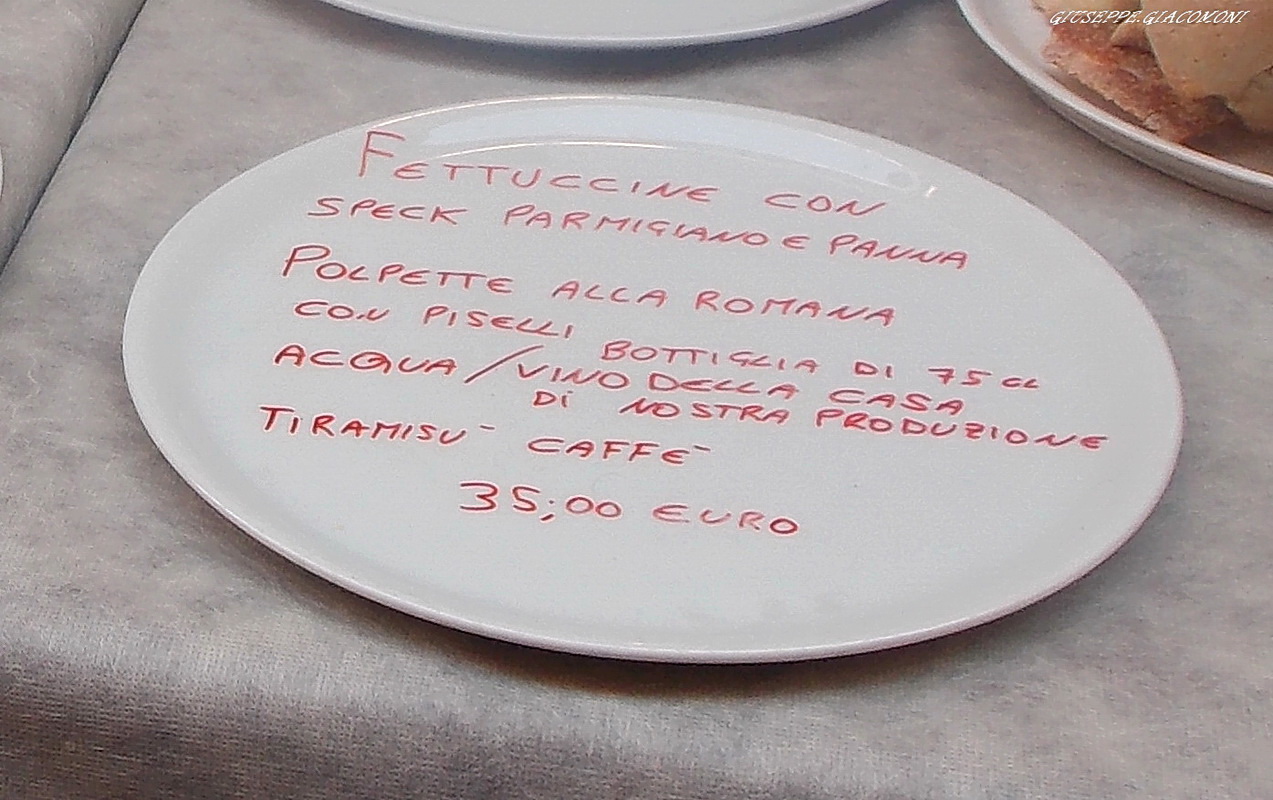 GIUSEPPE.GIACOMONI
FETTUCCINE CON
SPECK PARMIGIANO E PANNA
POLPETTE ALLA ROMANA
CON PISELLI
BOTTIGLIA DI 75 CL
ACQUA/VINO DELLA CASA
DI NOSTRA PRODUZIONE
TIRAMISU- CAFFE-
35;00 EURO